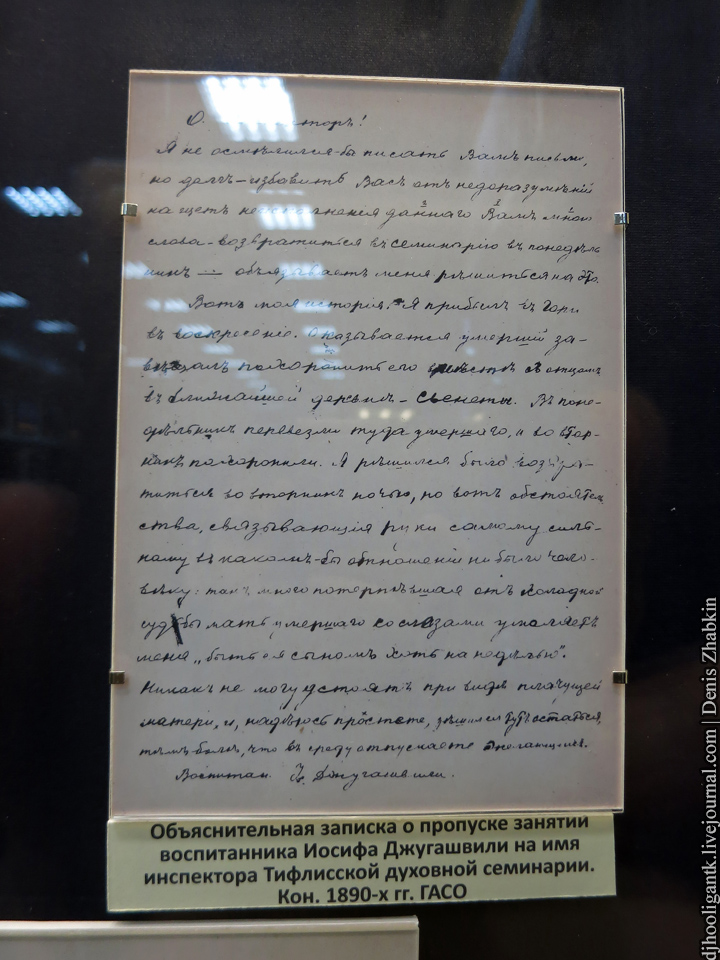 О. торъ!
Я не осмѣлился-бы писать Вамъ письмо,
но долгъ – избавить Васъ отъ недоразумѣній
на щетъ неисполненія даннаго Вамъ мною
слова – возвратиться въ семинарію въ понедѣль
никъ — обязываетъ меня рѣшиться на это.
Вотъ моя исторія. Я прибылъ въ Гори
въ воскресеніе. Оказывается умерший за-
вѣщалъ похоронить его вмѣстѣ съ отцомъ
въ ближайшей деревнѣ – Свенеты. Въ поне-
дѣльникъ перевезли туда умершаго, и во втор-
никъ похоронили. Я рѣшился было возвра-
титься во вторникъ ночью, но вотъ обстоятель
ства, связывающія руки самому силь-
ному въ какомъ-бы отношеніи ни было чело-
вѣку: такъ много потерпѣвшая отъ холодной
судьбы мать умершаго со слезами умоляетъ
меня „быть ея сыномъ хоть на недѣлью".
Никакъ не могу устоять при видѣ плачущей
матери, и, надѣюсь простете, рѣшился тутъ остаться,
тѣмъ болѣе, что въ среду отпускаете желающихъ.
Воспитан. И. Джугашвили.
Объяснительная записка о пропуске занятий
воспитанника Иосифа Джугашвили на имя
инспектора Тифлисской духовной семинарии.
Кон. 1890-х гг. ГАСО
djhooligantk.livejournal.com | Denis Zhabkin